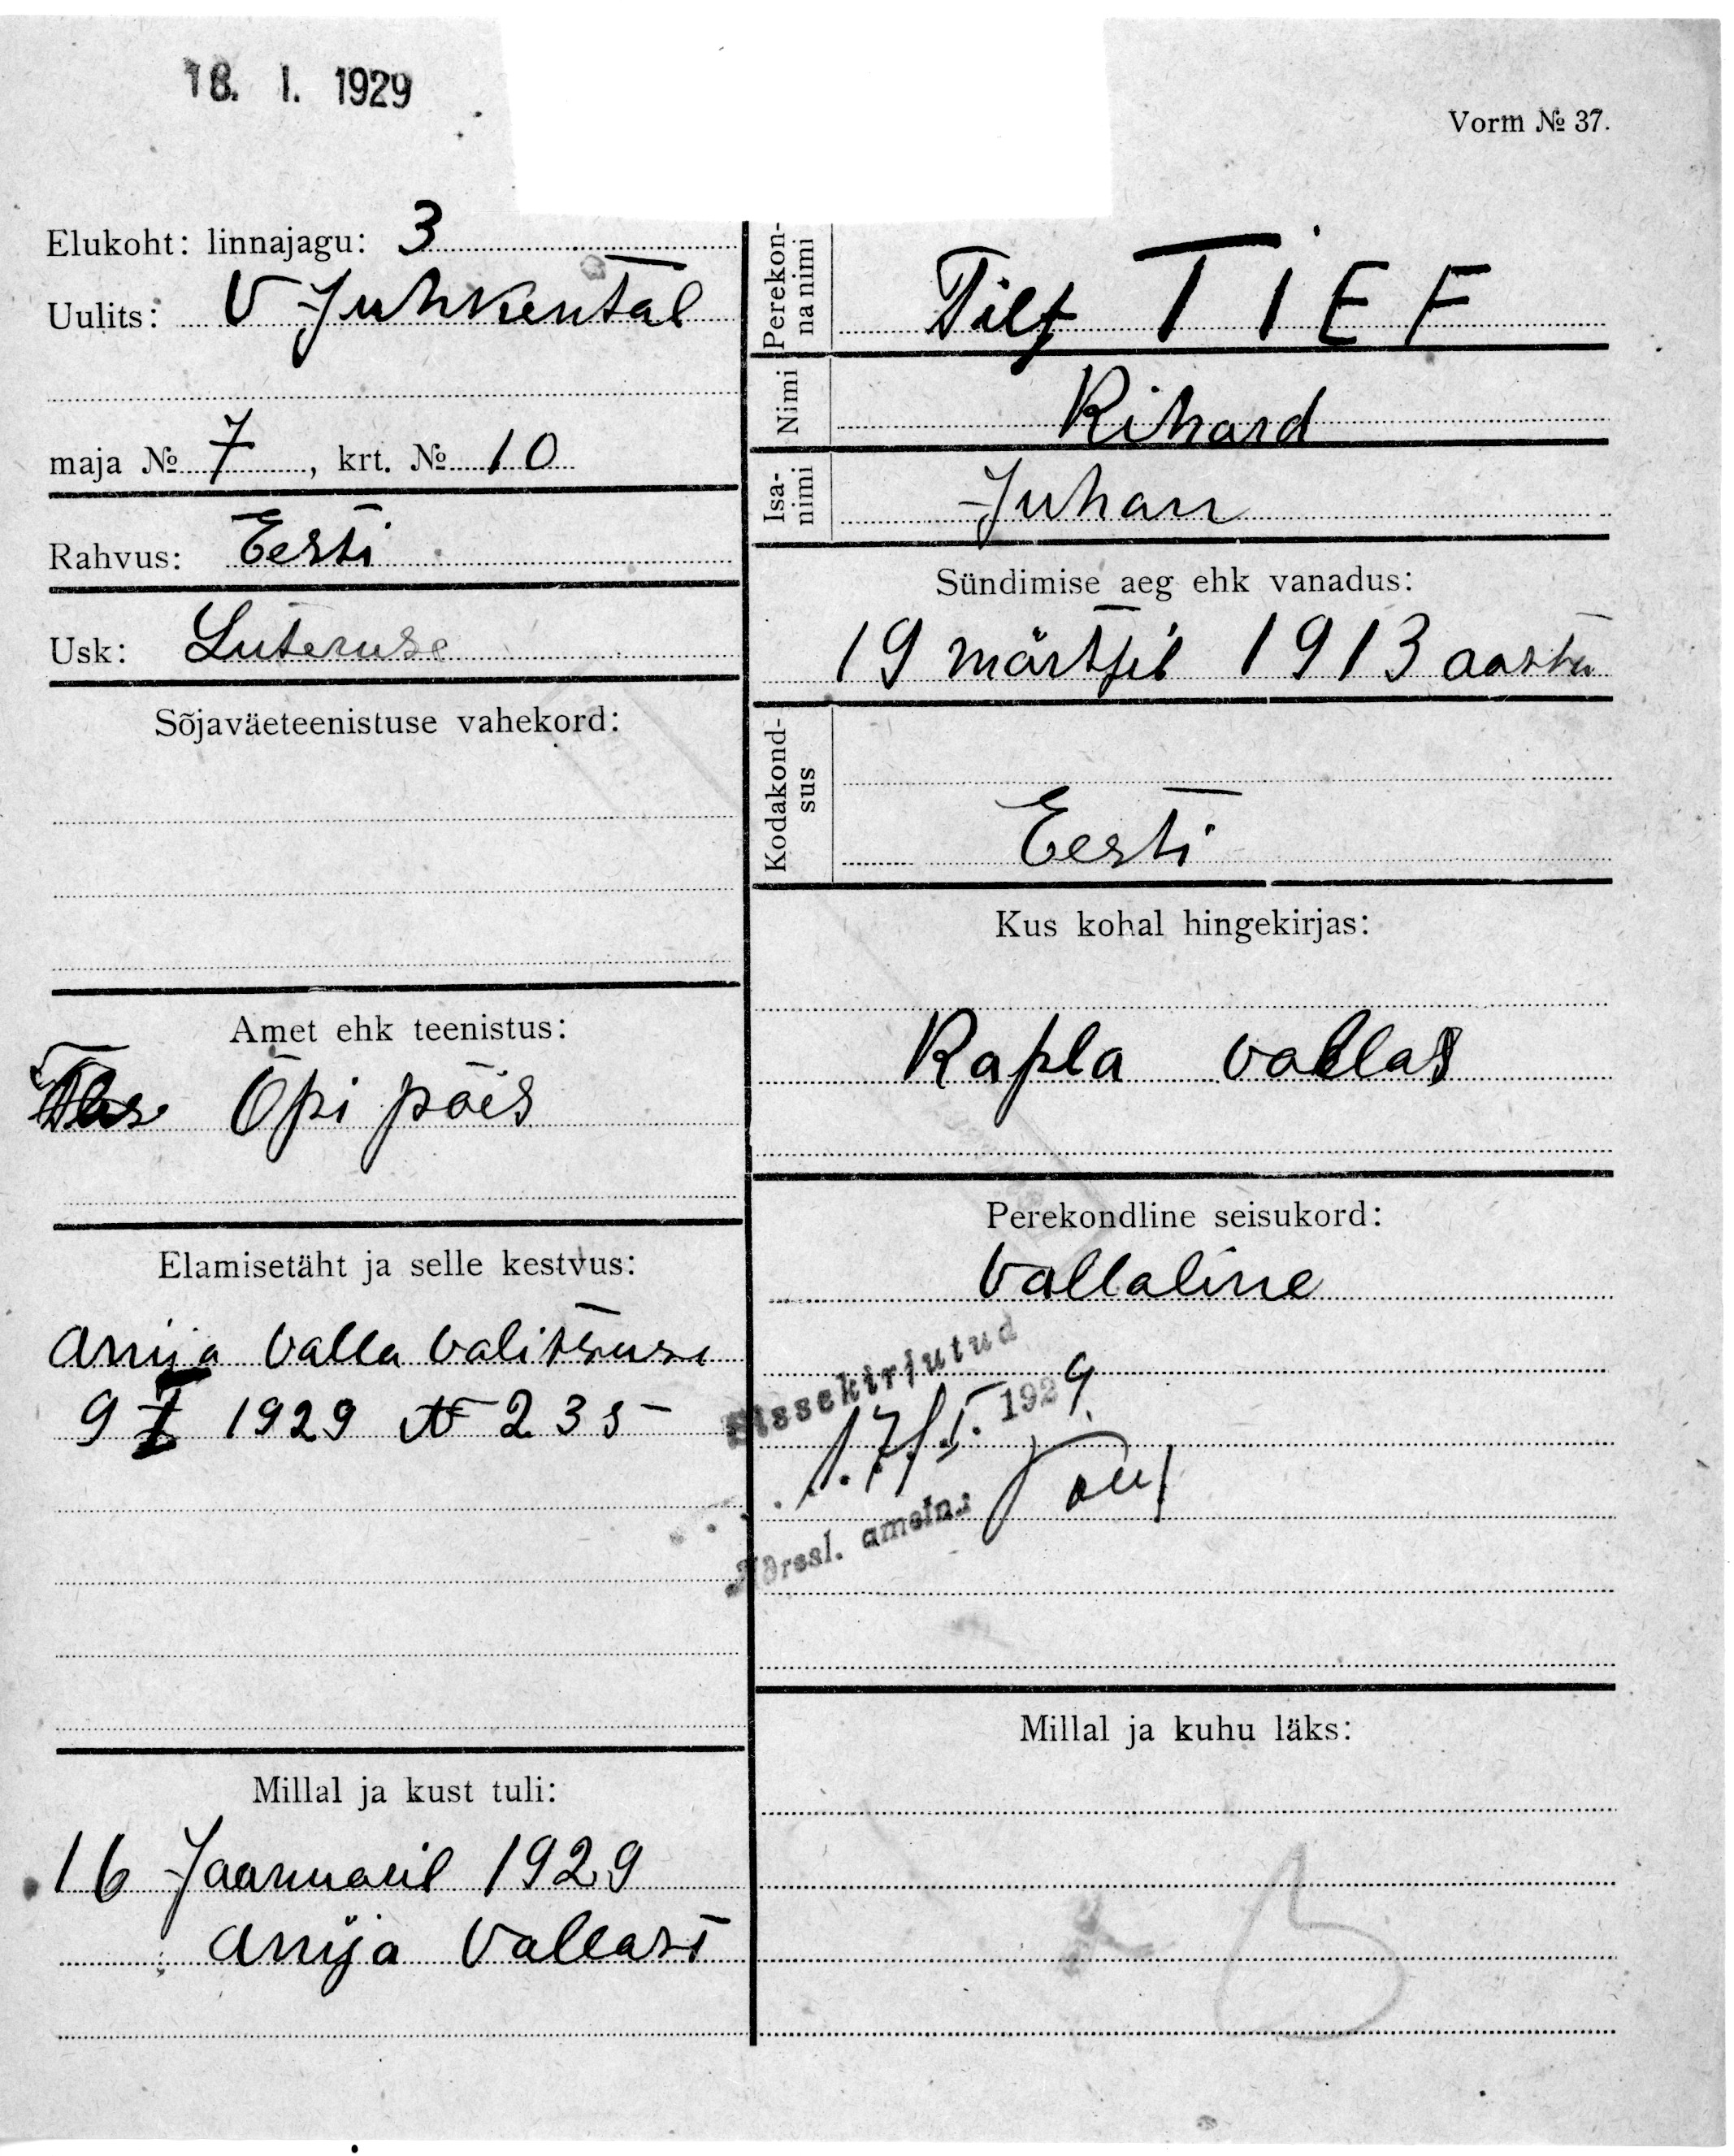 18. I. 1929
Vorm № 37.
Elukoht: linnajagu: 3
Uulits: V Juhkental
maja № 7, krt. № 10
Rahvus: Eesti
Usk: Luteruse
Sõjaväeteenistuse vahekord:
Amet ehk teenistus:
Õpi pois
Elamisetäht ja selle kestvus:
Anija Valla Valitsuse
9 I 1929 № 235
Millal ja kust tuli:
16 Jaanuaril 1929
Anija Vallast
Perekonna nimi
Tilf TIEF
Nimi
Rihard
Isanimi
Juhan
Sündimise aeg ehk vanadus:
19 märtsil 1913 aasta
Kodakondsus
Eesti
Kus kohal hingekirjas:
Rapla vallas
Perekondline seisukord:
Vallaline
Sissekirjutud
17/I. 1929.
Adressl. ametn.:
Millal ja kuhu läks: